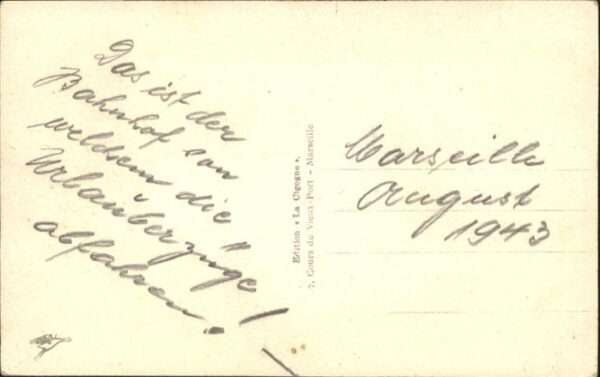 Das ist der
Bahnhof von
welchem die
Urlauberzüge
abfahren!
Edition « La Cigogne ».
7, Cours du Vieux-Port – Marseille
Marseille
August
1943